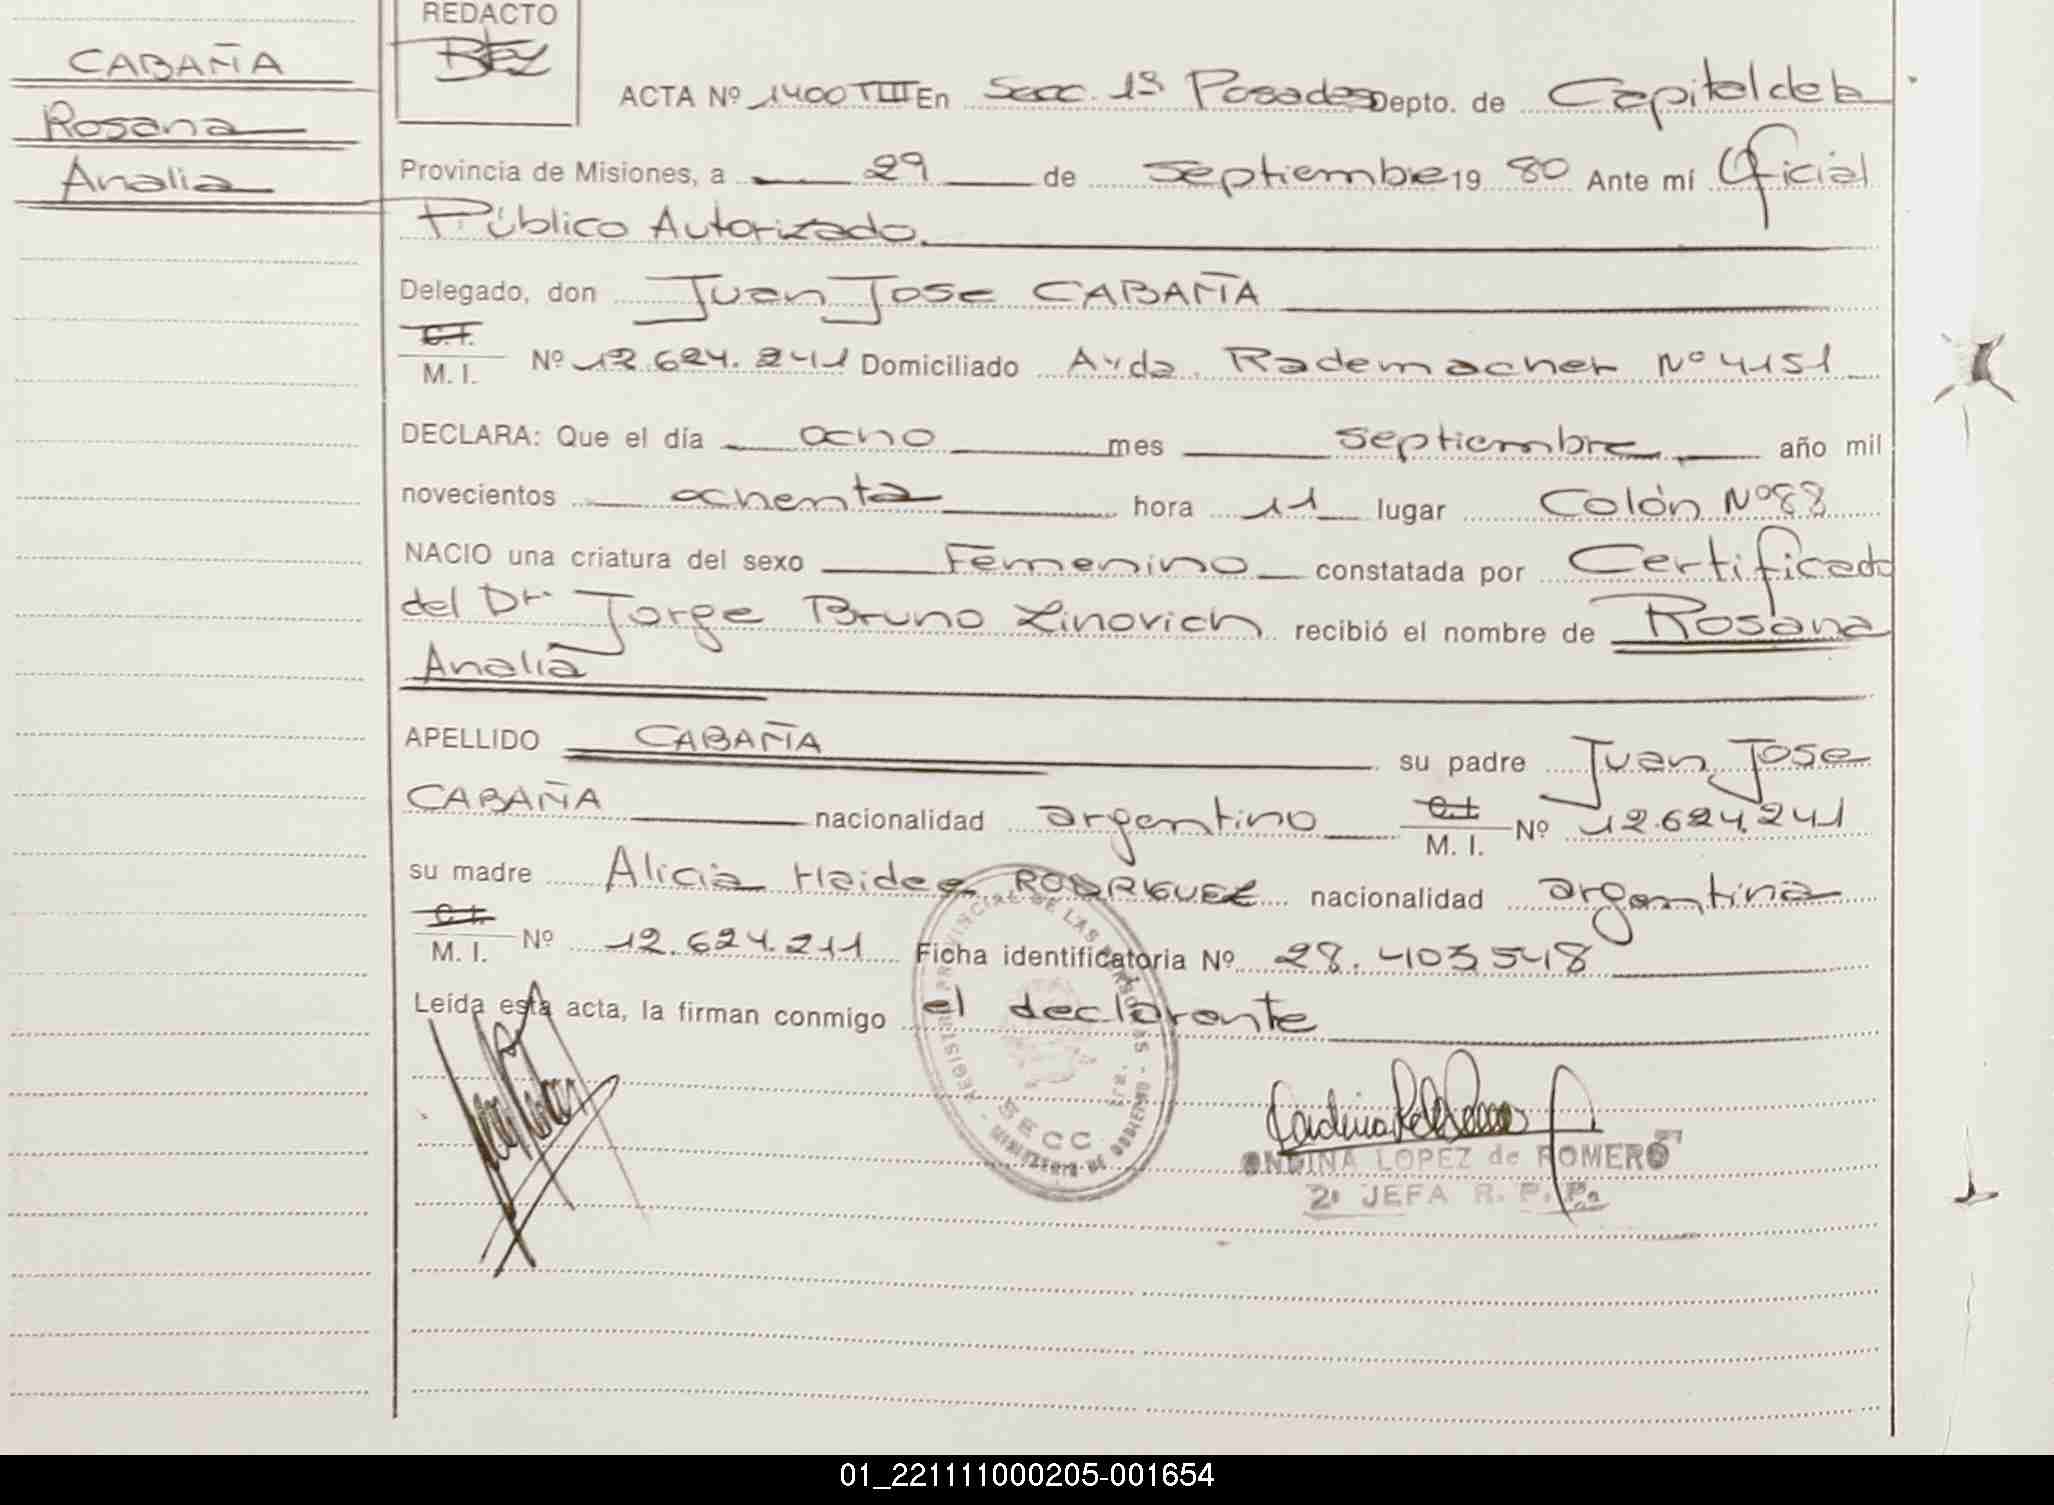 CABAÑA
Rosana
Analia
REDACTO
ACTA Nº 1400 TIII En Secc. 1ª Posadas Depto. de Capital de la
Provincia de Misiones, a 29 de Septiembre 19 80 Ante mí Oficial
Público Autorizado.
Delegado, don Juan Jose CABAÑA
C.I.
M. I. Nº 12.624.241 Domiciliado Avda. Rademacher Nº 4151
DECLARA: Que el día ocho mes septiembre año mil
novecientos ochenta hora 11 lugar Colón Nº 88
NACIO una criatura del sexo Femenino constatada por Certificado
del Dr. Jorge Bruno Linovich recibió el nombre de Rosana
Analia
APELLIDO CABAÑA su padre Juan Jose
CABAÑA nacionalidad argentino C.I. M. I. Nº 12.624.241
su madre Alicia Haidee RODRIGUEZ nacionalidad argentina
C.I.
M. I. Nº 12.624.211 Ficha identificatoria Nº 28.403548
Leída esta acta, la firman conmigo el declarante
REGISTRO PROVINCIAL DE LAS PERSONAS
SECC
MINISTERIO DE GOBIERNO
ONDINA LOPEZ de ROMERO
2º JEFA R. P. Ps
01_221111000205-001654